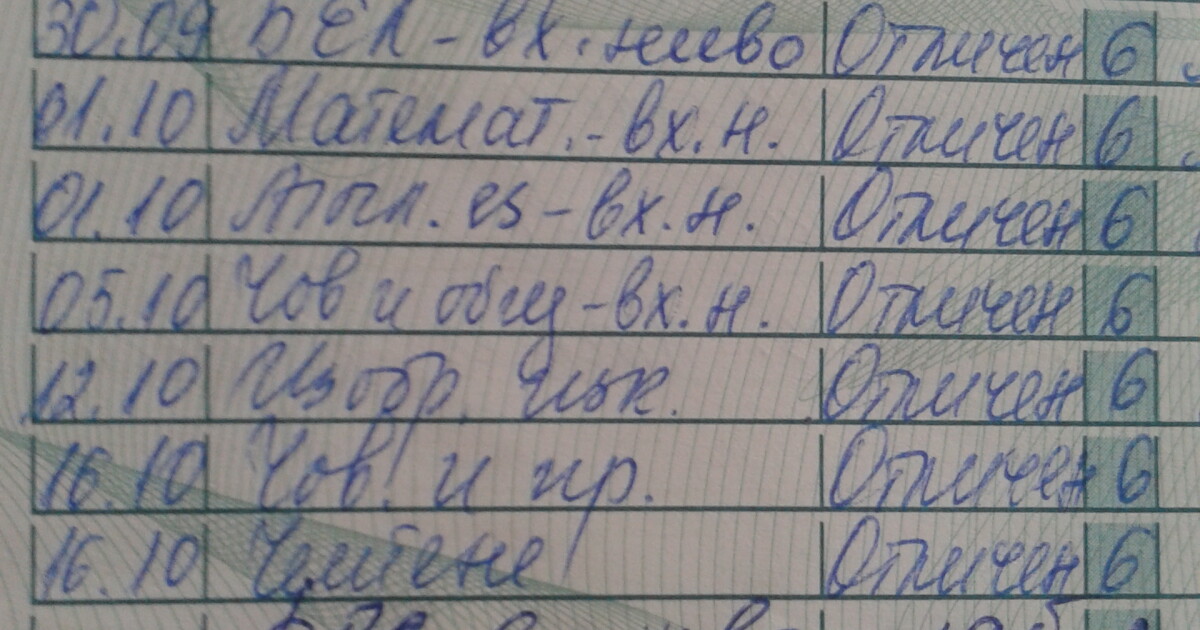 30.09 БЕЛ - вх. ниво Отличен 6
01.10 Математ. - вх. н. Отличен 6
01.10 Англ. ез - вх. н. Отличен 6
05.10 Чов и общ - вх. н. Отличен 6
12.10 Изобр. изк. Отличен 6
16.10 Чов. и пр. Отличен 6
16.10 Четене Отличен 6